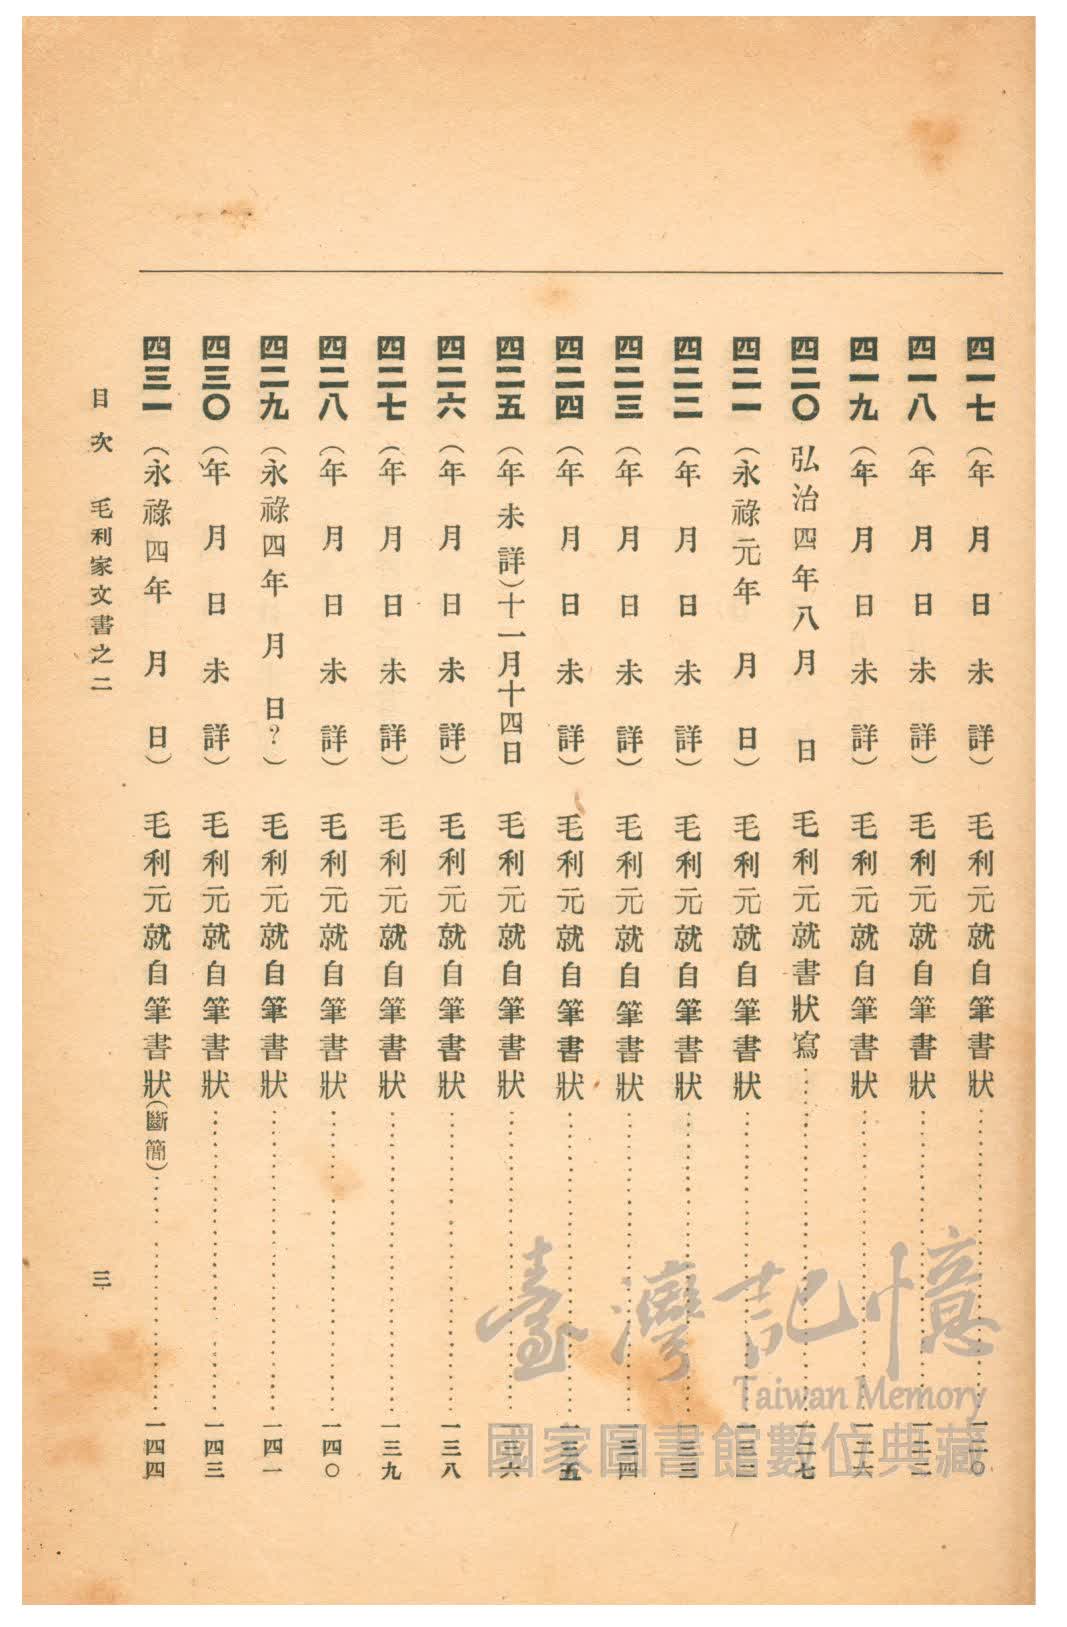 四一七 (年月日未詳) 毛利元就自筆書狀……一二〇
四一八 (年月日未詳) 毛利元就自筆書狀……一二二
四一九 (年月日未詳) 毛利元就自筆書狀……一二六
四二〇 弘治四年八月 日 毛利元就書狀寫……一二七
四二一 (永祿元年 月 日) 毛利元就自筆書狀……一三二
四二二 (年月日未詳) 毛利元就自筆書狀……一三三
四二三 (年月日未詳) 毛利元就自筆書狀……一三四
四二四 (年月日未詳) 毛利元就自筆書狀……一三五
四二五 (年未詳)十一月十四日 毛利元就自筆書狀……一三六
四二六 (年月日未詳) 毛利元就自筆書狀……一三八
四二七 (年月日未詳) 毛利元就自筆書狀……一三九
四二八 (年月日未詳) 毛利元就自筆書狀……一四〇
四二九 (永祿四年 月 日?) 毛利元就自筆書狀……一四一
四三〇 (年月日未詳) 毛利元就自筆書狀……一四三
四三一 (永祿四年 月 日) 毛利元就自筆書狀(斷簡)……一四四
目次 毛利家文書之二 三
臺灣記憶
Taiwan Memory
國家圖書館數位典藏